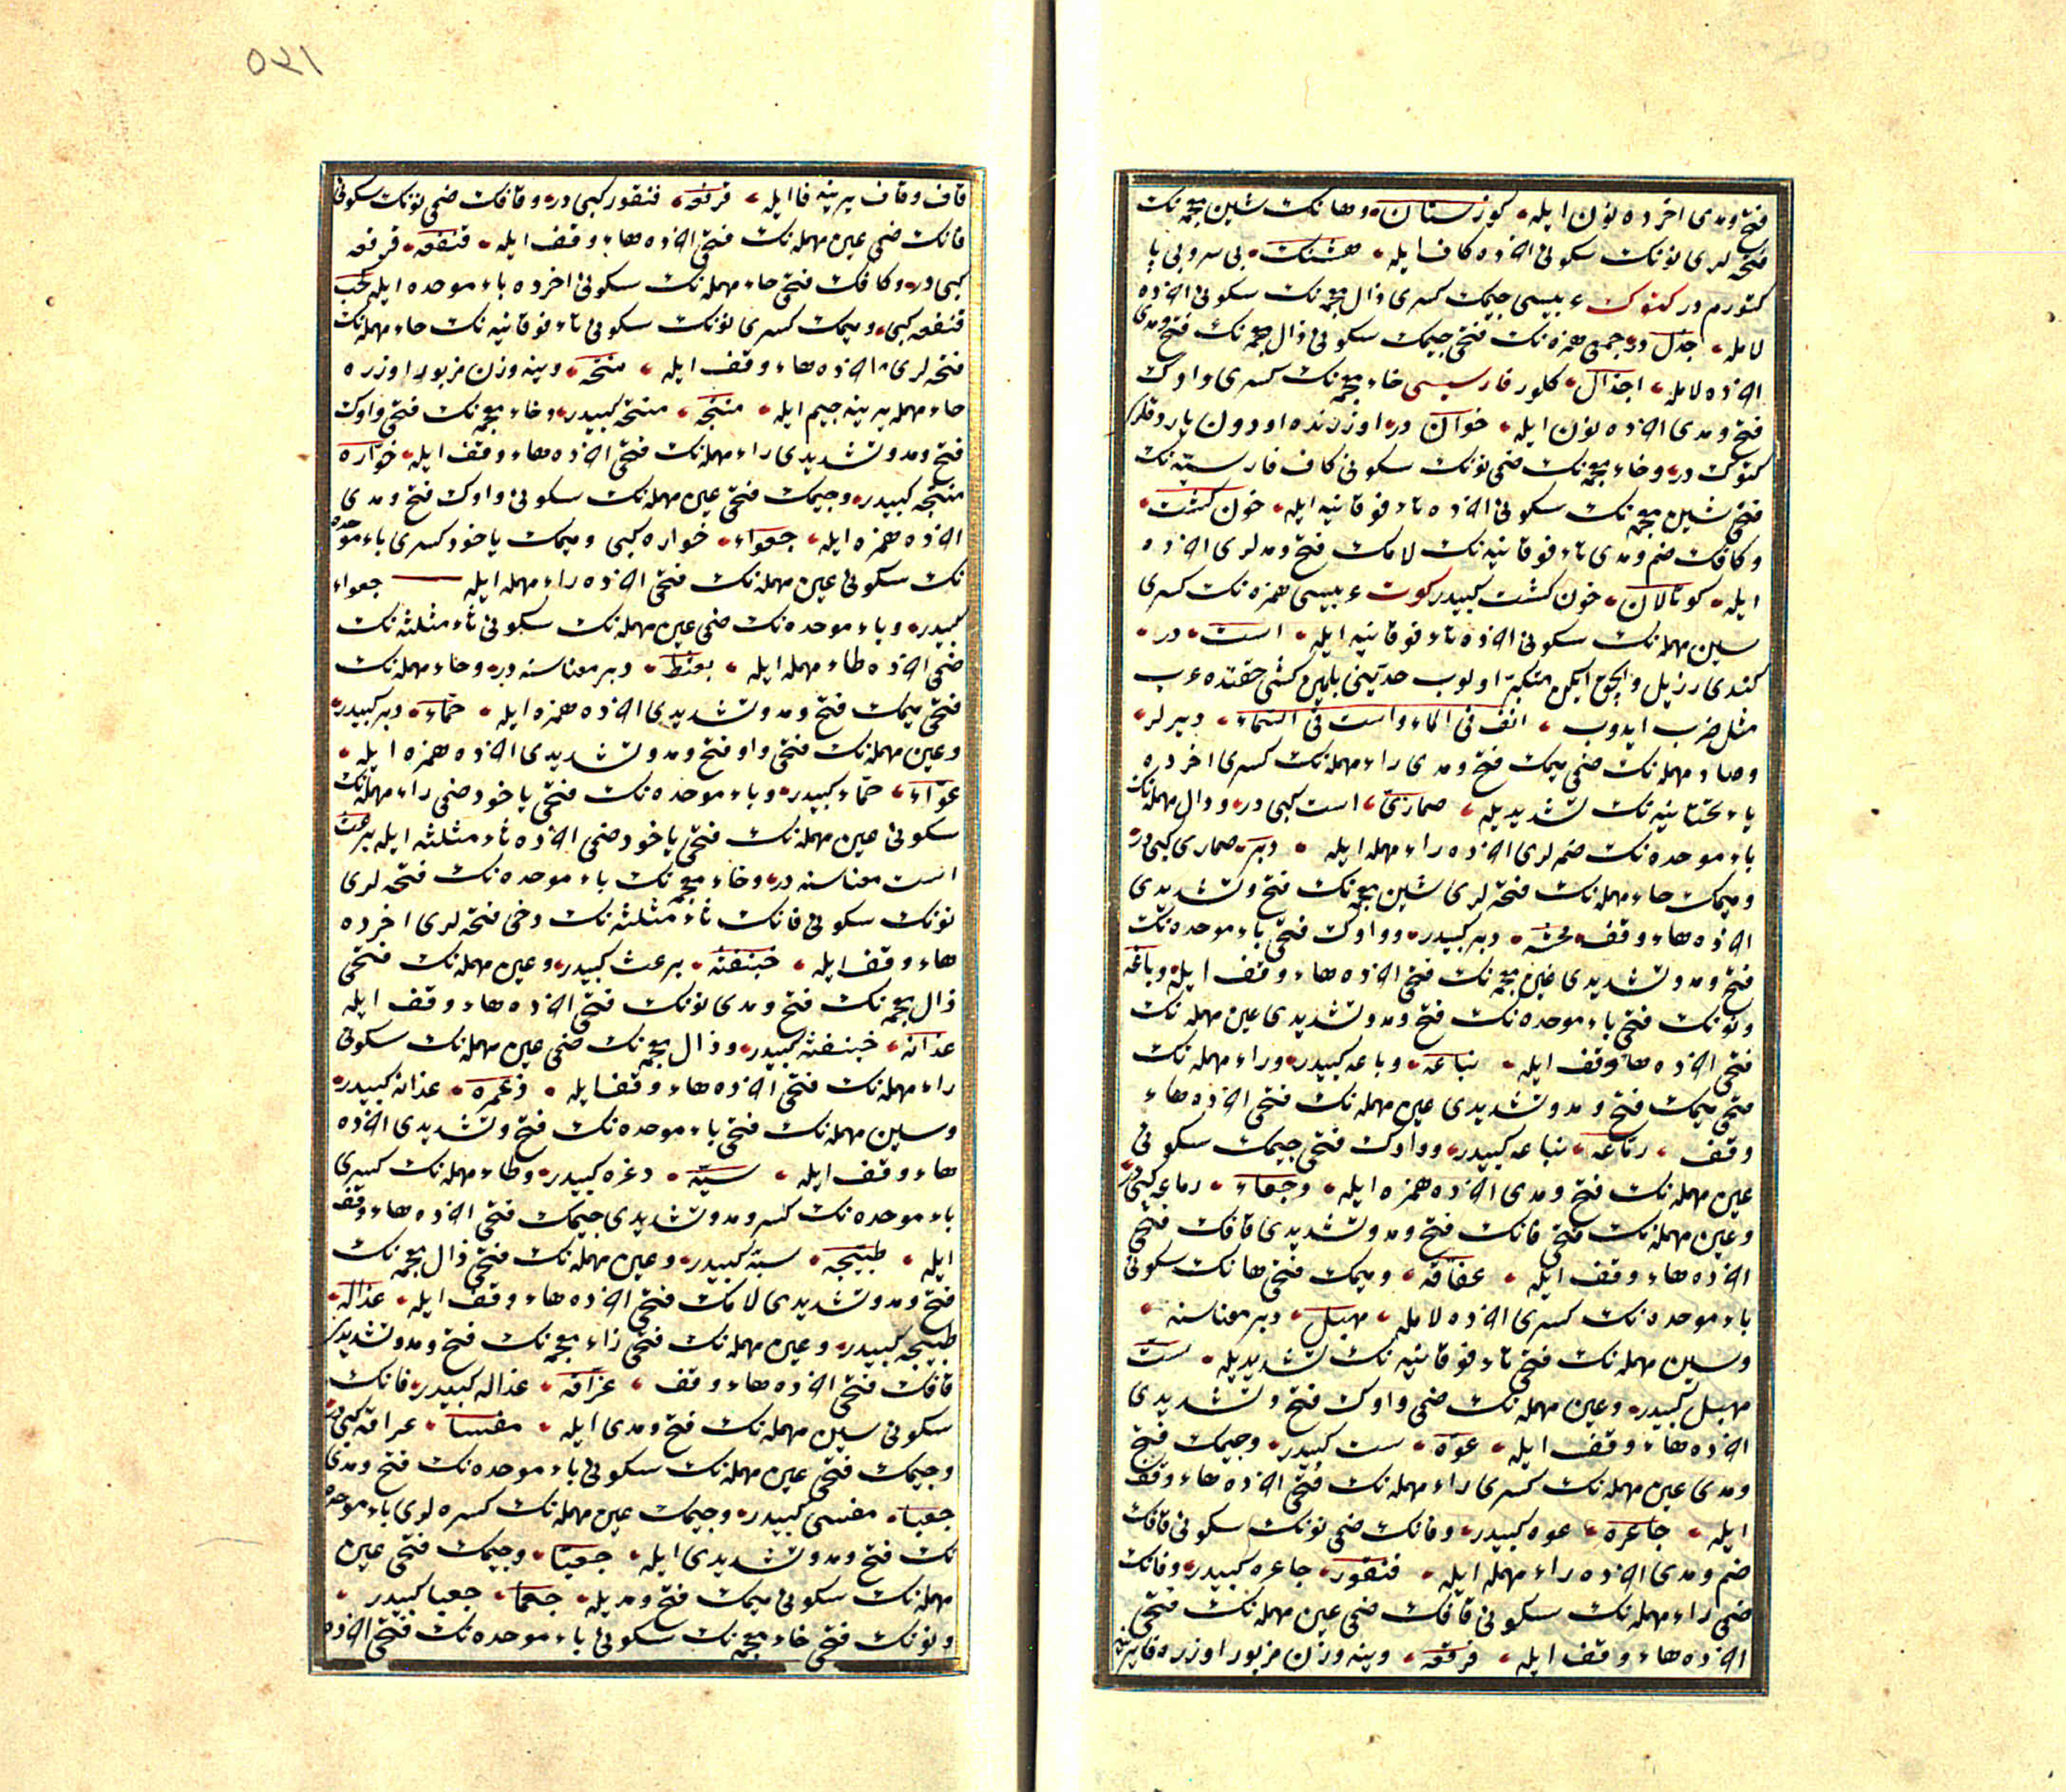 فتح ومدی اخرده نون ایله کوزستان وهانك شین معجمه نك
فتحه لری نونك سکونی اخرده کاف ایله هشنك بی سروبی پا
کتورم در کتوك عربیسی جیمك کسری ذال معجمه نك سکونی اخرده
لامله جذل در جمعی همزه نك فتحی جیمك سکونی ذال معجمه نك فتح ومدی
اخرده لامله اجذال کلور فارسیسی خاء معجمه نك کسری واوك
فتح ومدی اخرده نون ایله خوان در اوزرنده اودون یاردقلری
کتوك در وخاء معجمه نك ضمی نونك سکونی کاف فارسیه نك
فتحی شین معجمه نك سکونی اخرده تاء فوقانیه ایله خون کشت
وکافك ضم ومدی تاء فوقانیه نك لامك فتح ومدلری اخرده
ایله کوتالان خون کشت کبیدر کوت عربیسی همزه نك کسری
سین مهمله نك سکونی اخرده تاء فوقانیه ایله است در
کندی رزیل والچق ایکن متکبر اولوب حدینی بلمین کشی حقنده عرب
مثل ضرب ایدوب انف فی الماء واست فی السماء دیرلر
وصاد مهمله نك ضمی میمك فتح ومدی راء مهمله نك کسری اخرده
یاء تحتانیه نك تشدیدیله صماریّ است کبی در ودال مهمله نك
باء موحده نك ضمه لری اخرده راء مهمله ایله دبر صماری کبی در
ومیمك حاء مهمله نك فتحه لری شین معجمه نك فتح وتشدیدی
اخرده هاء وقف محشه دبر کبیدر وواوك فتحی باء موحده نك
فتح ومد وتشدیدی غین معجمه نك فتحی اخرده هاء وقف ایله وباغه
ونونك فتحی باء موحده نك فتح ومد وتشدیدی عین مهمله نك
فتحی اخرده هاء وقف ایله نباعه وباعه کبیدر وراء مهمله نك
فتحی میمك فتح ومد وتشدیدی عین مهمله نك فتحی اخرده هاء
وقف رماعه نباعه کبیدر وواوك فتحی جیمك سکونی
عین مهمله نك فتح ومدی اخرده همزه ایله وجعاء رماعه کبی در
وعین مهمله نك فتحی فانك فتح ومد وتشدیدی قافك فتحی
اخرده هاء وقف ایله عفاقه ومیمك فتحی هانك سکونی
باء موحده نك کسری اخرده لامله مهبل دبر معناسنه
وسین مهمله نك فتحی تاء فوقانیه نك تشدیدیله ستّ
مهبل کبیدر وعین مهمله نك ضمی واوك فتح وتشدیدی
اخرده هاء وقف ایله عوه ست کبیدر وجیمك فتح
ومدی عین مهمله نك کسری راء مهمله نك فتحی اخرده هاء وقف
ایله جاعره عوه کبیدر وفانك ضمی نونك سکونی قافك
ضم ومدی اخرده راء مهمله ایله فنقور جاعره کبیدر وفانك
ضمی راء مهمله نك سکونی قافك ضمی عین مهمله نك فتحی
اخرده هاء وقف ایله فرقعه وینه وزن مزبور اوزره فا یرینه
٥٣١
قاف وقاف یرینه فا ایله قرفعه فنقور کبی در وقافك ضمی نونك سکونی
فانك ضمی عین مهمله نك فتحی اخرده هاء وقف ایله قنفعه قرفعه
کبی در وکافك فتحی حاء مهمله نك سکونی اخرده باء موحده ایله کحب
قنفعه کبی ومیمك کسری نونك سکونی تاء فوقانیه نك حاء مهمله نك
فتحه لری اخرده هاء وقف ایله منتحه وینه وزن مزبور اوزره
حاء مهمله یرینه جیم ایله منتجه منتحه کبیدر وخاء معجمه نك فتحی واوك
فتح ومد وتشدیدی راء مهمله نك فتحی اخرده هاء وقف ایله خوّاره
منتجه کبیدر وجیمك فتحی عین مهمله نك سکونی واوك فتح ومدی
اخرده همزه ایله جعواء خواره کبی ومیمك یاخود کسری باء موحده
نك سکونی عین مهمله نك فتحی اخرده راء مهمله ایله جعواء
کبیدر وباء موحده نك ضمی عین مهمله نك سکونی ثاء مثلثه نك
ضمی اخرده طاء مهمله ایله بعثط دبر معناسنه در وحاء مهمله نك
فتحی میمك فتح ومد وتشدیدی اخرده همزه ایله حمّاء دبر کبیدر
وعین مهمله نك فتحی واو فتح ومد وتشدیدی اخرده همزه ایله
عوّاء حمّاء کبیدر وباء موحده نك فتحی یاخود ضمی راء مهمله نك
سکونی عین مهمله نك فتحی یاخود ضمی اخرده ثاء مثلثه ایله برعث
است معناسنه در وخاء معجمه نك باء موحده نك فتحه لری
نونك سکونی فانك ثاء مثلثه نك دخی فتحه لری اخرده
هاء وقف ایله خبنفثه برعث کبیدر وعین مهمله نك فتحی
ذال معجمه نك فتح ومدی نونك فتحی اخرده هاء وقف ایله
عذانه خبنفثه کبیدر وذال معجمه نك ضمی عین مهمله نك سکونی
راء مهمله نك فتحی اخرده هاء وقف ایله ذعره عذانه کبیدر
وسین مهمله نك فتحی باء موحده نك فتح وتشدیدی اخرده
هاء وقف ایله سبّه ذعره کبیدر وطاء مهمله نك کسری
باء موحده نك کسر ومد وتشدیدی جیمك فتحی اخرده هاء وقف
ایله طبیجه سبّه کبیدر وعین مهمله نك فتحی ذال معجمه نك
فتح ومد وتشدیدی لامك فتحی اخرده هاء وقف ایله عذاله
طبیجه کبیدر وعین مهمله نك فتحی زاء معجمه نك فتح ومد وتشدیدی
قافك فتحی اخرده هاء وقف عزاقه عذاله کبیدر فانك
سکونی سین مهمله نك فتح ومدی ایله مفسا عزاقه کبی در
وجیمك فتحی عین مهمله نك سکونی باء موحده نك فتح ومدی
جعبا مفسی کبیدر وجیمك عین مهمله نك کسره لری باء موحده
نك فتح ومد وتشدیدی ایله جعبّا وجیمك فتحی عین
مهمله نك سکونی میمك فتح ومدیله جعما جعبا کبیدر
ونونك فتحی خاء معجمه نك سکونی باء موحده نك فتحی اخرده